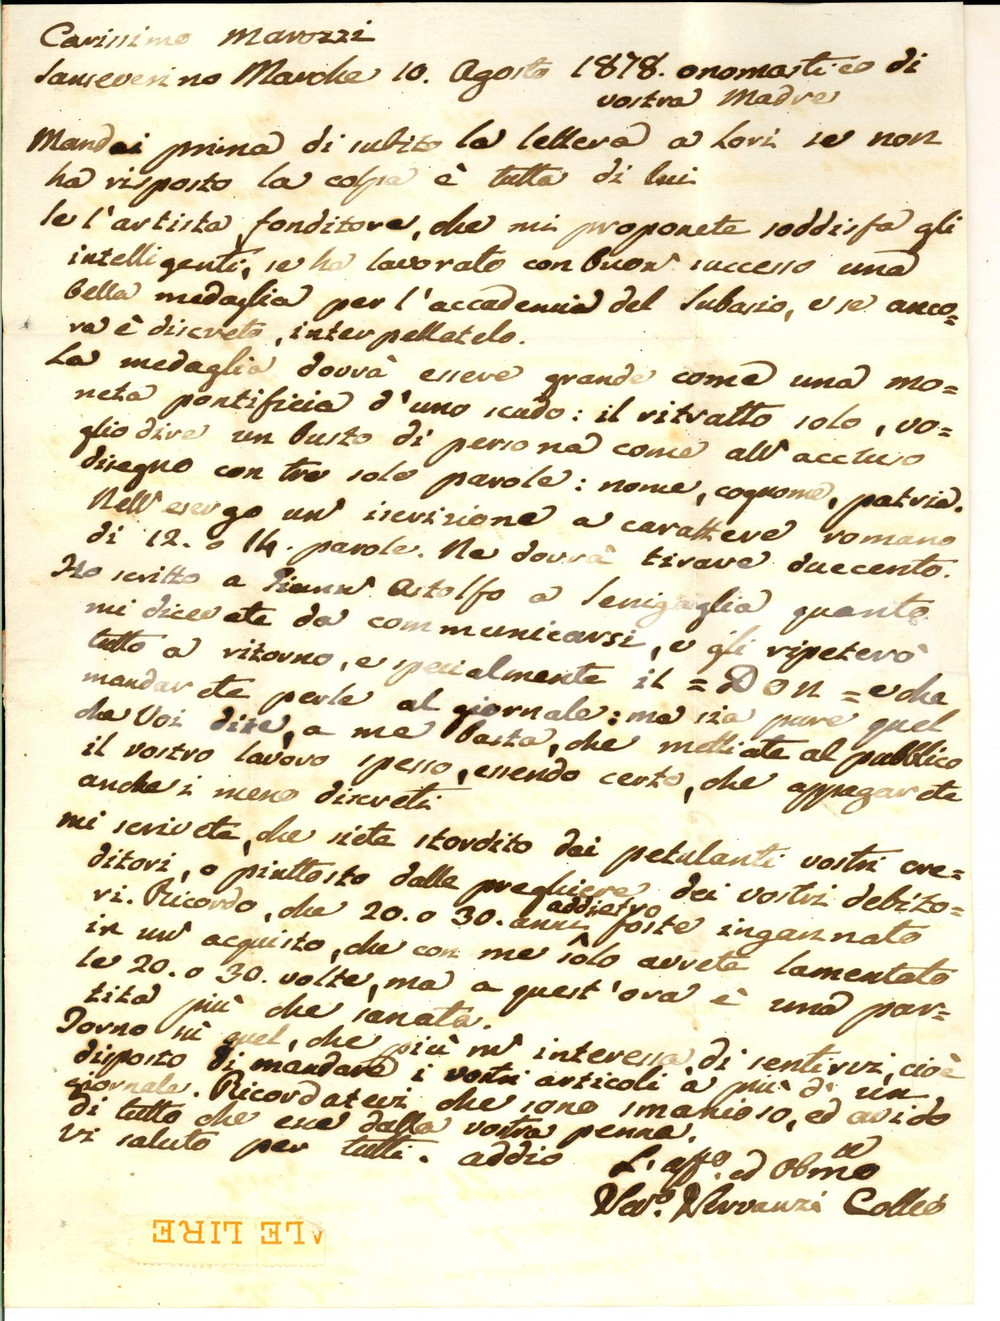 Carissimo Marozzi
Sanseverino Marche 10. Agosto 1878. onomastico di
vostra Madre
Mandai prima di subito la lettera a Lori se non
ha risposto la colpa è tutta di lui
Se l'artista, fonditore, che mi proponete soddisfa gli
intelligenti, se ha lavorato con buon successo una
bella medaglia per l'accademia del Subasio, e se anco=
ra è discreto, interpellatelo.
La medaglia dovrà essere grande come una mo=
neta pontificia d'uno scudo: il ritratto solo, vo=
glio dire un busto di persona come all'accluso
disegno con tre sole parole: nome, cognome, patria.
Nell'esergo un' iscrizione a carattere romano
di 12. o 14. parole. Ne dovrà tirare duecento.
Ho scritto a Astolfo a Senigaglia quanto
mi dicevate da communicarsi, e gli ripeterò
tutto a ritorno, e specialmente il = Don = e che
mandarete perle al giornale: ma sia pure quel
che Voi dite, a me basta, che mettiate al pubblico
il vostro lavoro spesso, essendo certo, che appagarete
anche i meno discreti
Mi scrivete, che siete stordito dai petulanti vostri cre=
ditori, o piuttosto dalle preghiere dei vostri debito=
ri. Ricordo, che 20. o 30. anni addietro foste ingannato
in un' acquisto, che con me solo avrete lamentato
le 20. o 30. volte, ma a quest'ora è una par=
tita più che sanata.
Torno su quel, che più m' interessa, di sentirvi, cioè
disposto di mandare i vostri articoli a più d' un
giornale. Ricordatevi che sono smanioso, ed avido
di tutto che esce dalla vostra penna.
Vi saluto per tutti. addio
L'affo. ed Obmo
Servanzi Collio
ALE LIRE